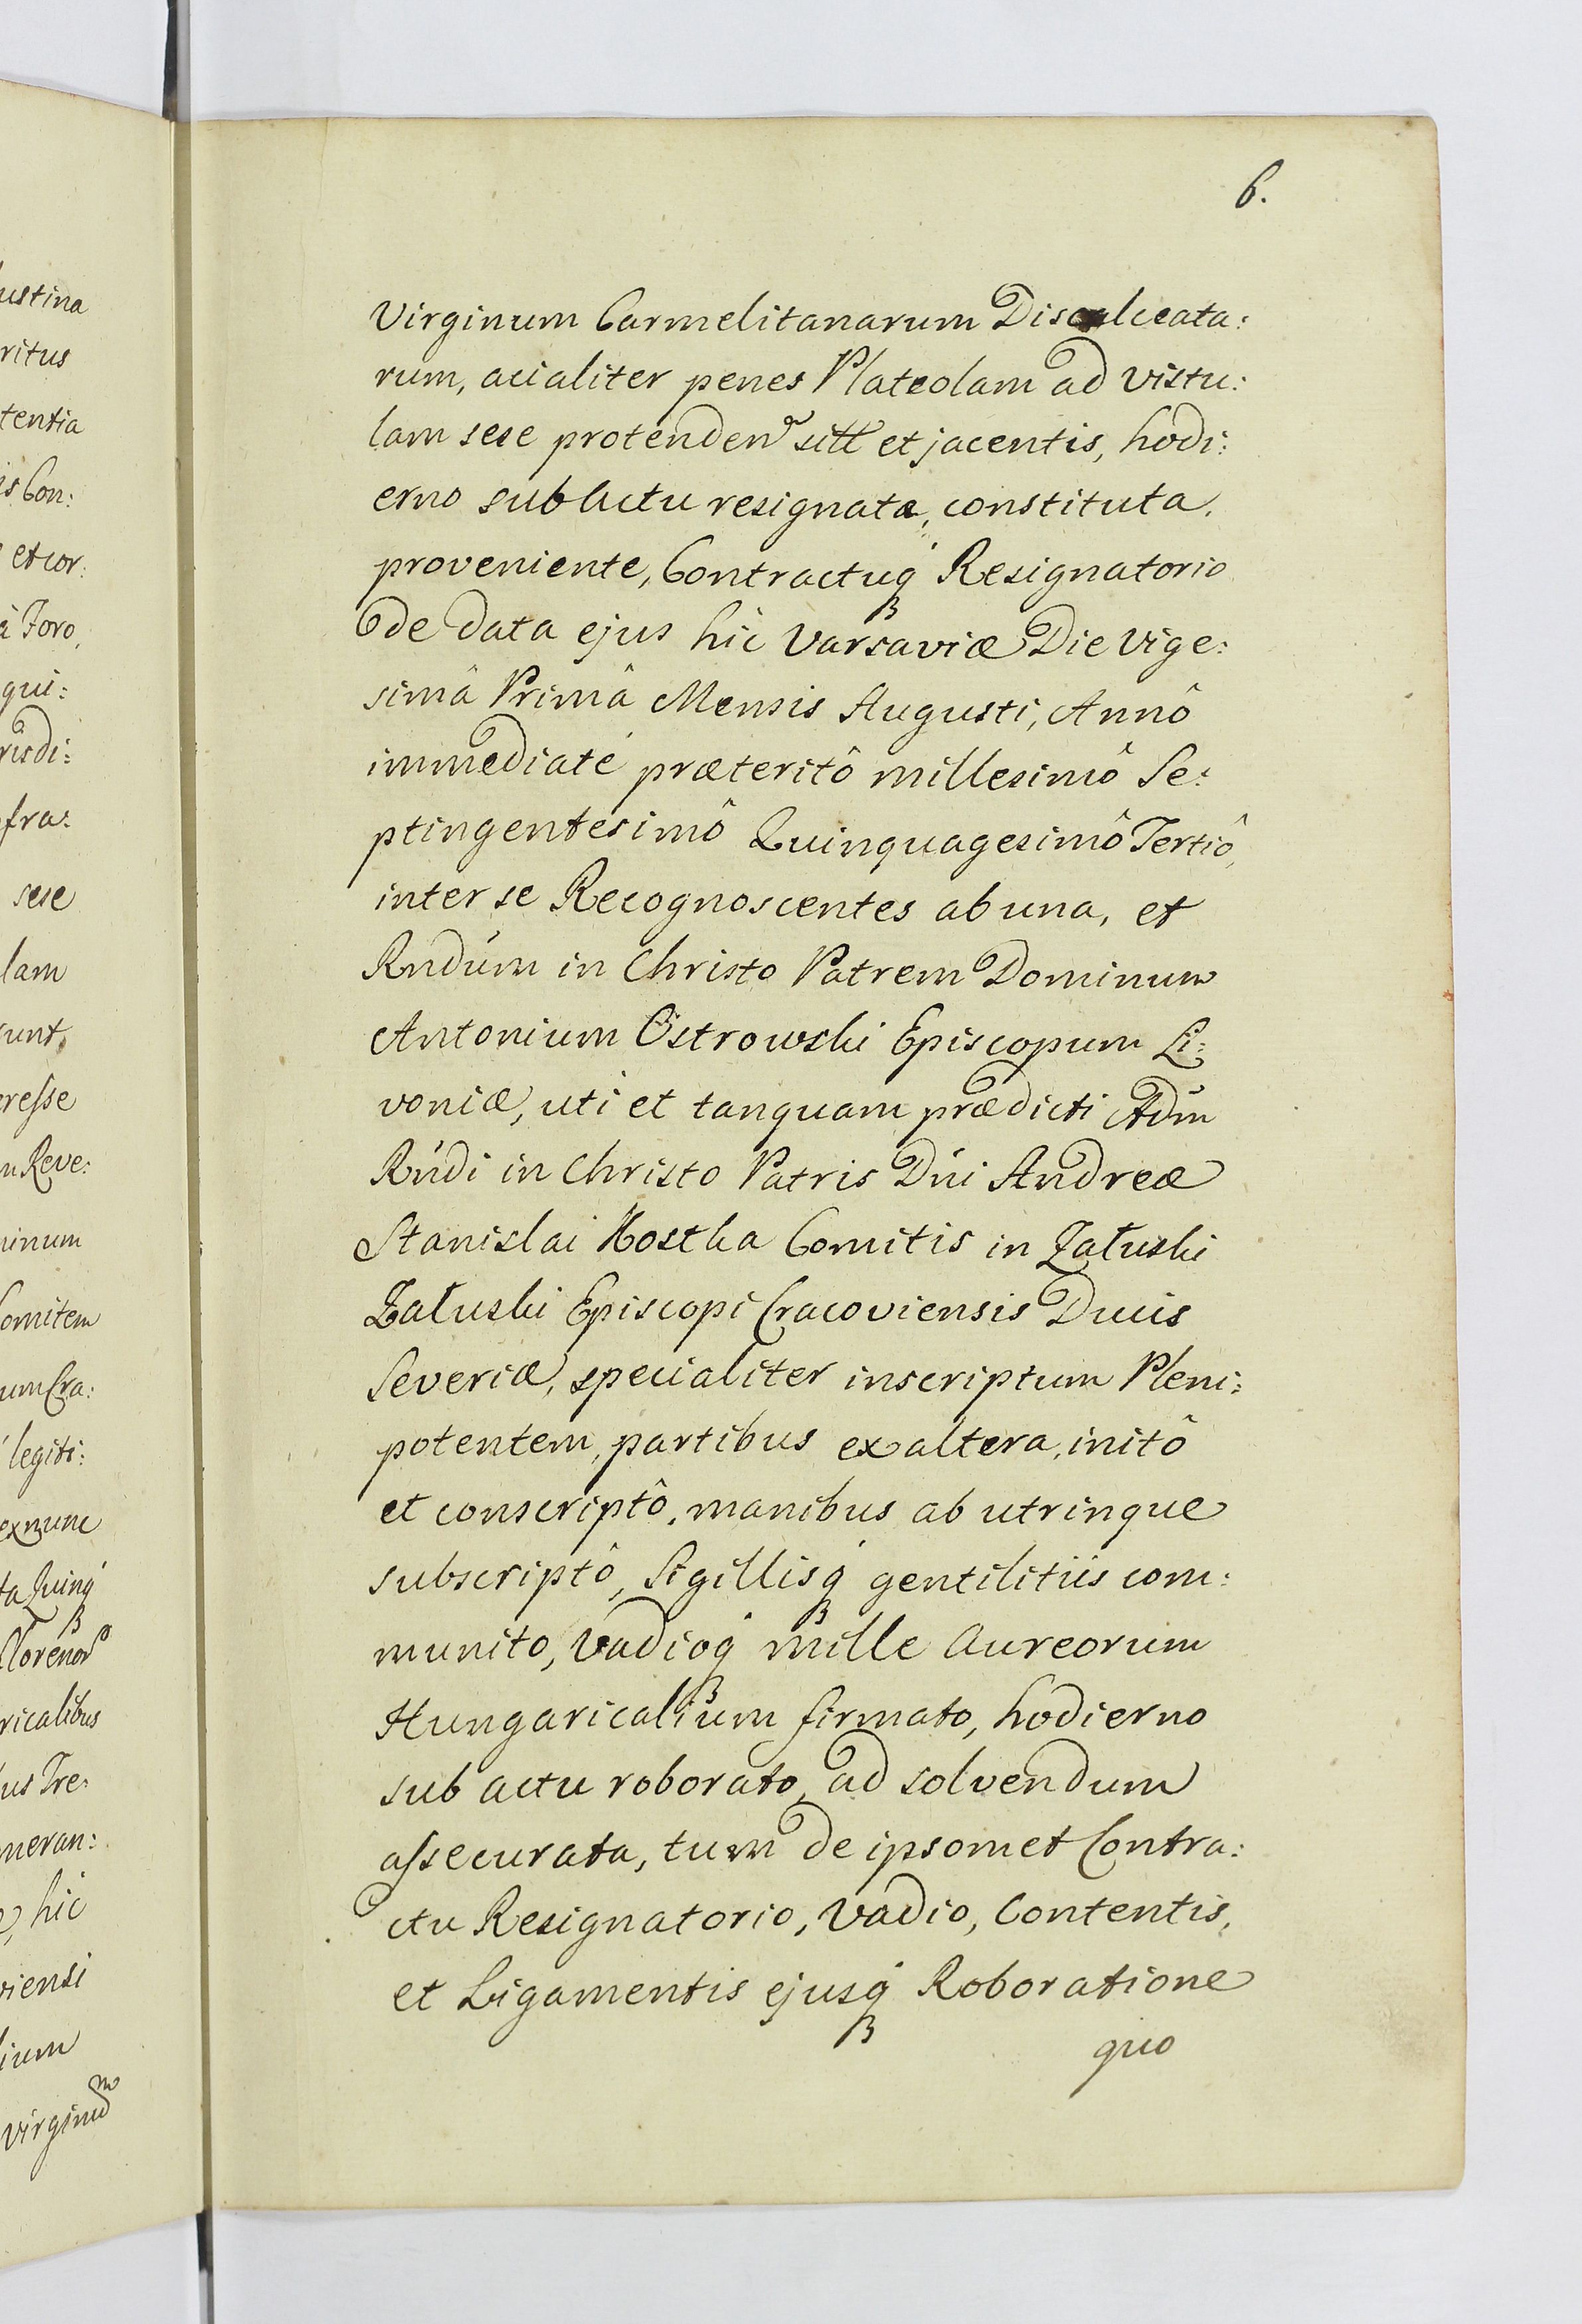 6.
Virginum Carmelitanarum Discalceata:
rum, acialiter penes Plateolam ad Vistu:
lam sese protenden sitt et jacentis, hodi:
erno sub Actu resignata, constituta,
proveniente, Contractuq́ Resignatorio
de data ejus hic Varsaviæ Die Vige:
simâ Primâ Mensis Augusti, Annô
immediaté præteritô millesimô Se:
ptingentesimô Quinquagesimô Tertiô,
inter se Recognoscentes ab una, et
Rndúm in Christo Patrem Dominum
Antonium Ostrowski Episcopum Li:
voniæ, uti et tanquam prædicti Adm
Rńdi in Christo Patris Dńi Andreæ
Stanislai Kostka Comitis in Załuski
Załuski Episcopi Cracoviensis Ducis
Severiæ, specialiter inscriptum Pleni:
potentem, partibus ex altera, initô
et conscriptô, manibus ab utrinque
subscriptô, Sigillisq́ gentilitiis com:
munito, Vadioq́ mille Aureorum
Hungaricalium firmato, hodierno
sub actu roborato, ad solvendum
assecurata, tum de ipsomet Contra:
ctu Resignatorio, Vadio, Contentis,
et Ligamentis ejusq́ Roboratione
quo